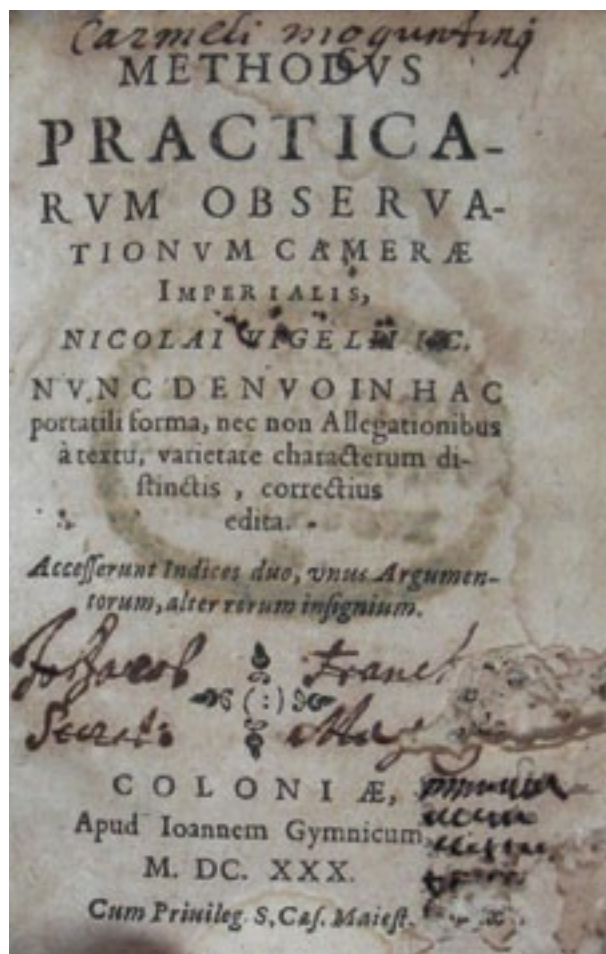 Carmeli moguntini
METHODVS
PRACTICA-
RVM OBSERVA-
TIONVM CAMERÆ
IMPERIALIS,
NICOLAI VIGELII IC.
NVNC DENVO IN HAC
portatili forma, nec non Allegationibus
à textu, varietate characterum di-
stinctis, correctius
edita.
Accesserunt Indices duo, vnus Argumen-
torum, alter rerum insignium.
Jacob Franck
(:)
COLONIÆ,
Apud Ioannem Gymnicum
M. DC. XXX.
Cum Priuileg. S. Cæs. Maiest.